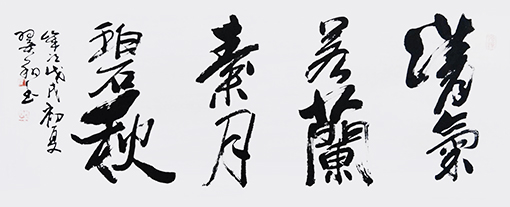 清氣
若蘭
素月
碧秋
戊戌初夏
书